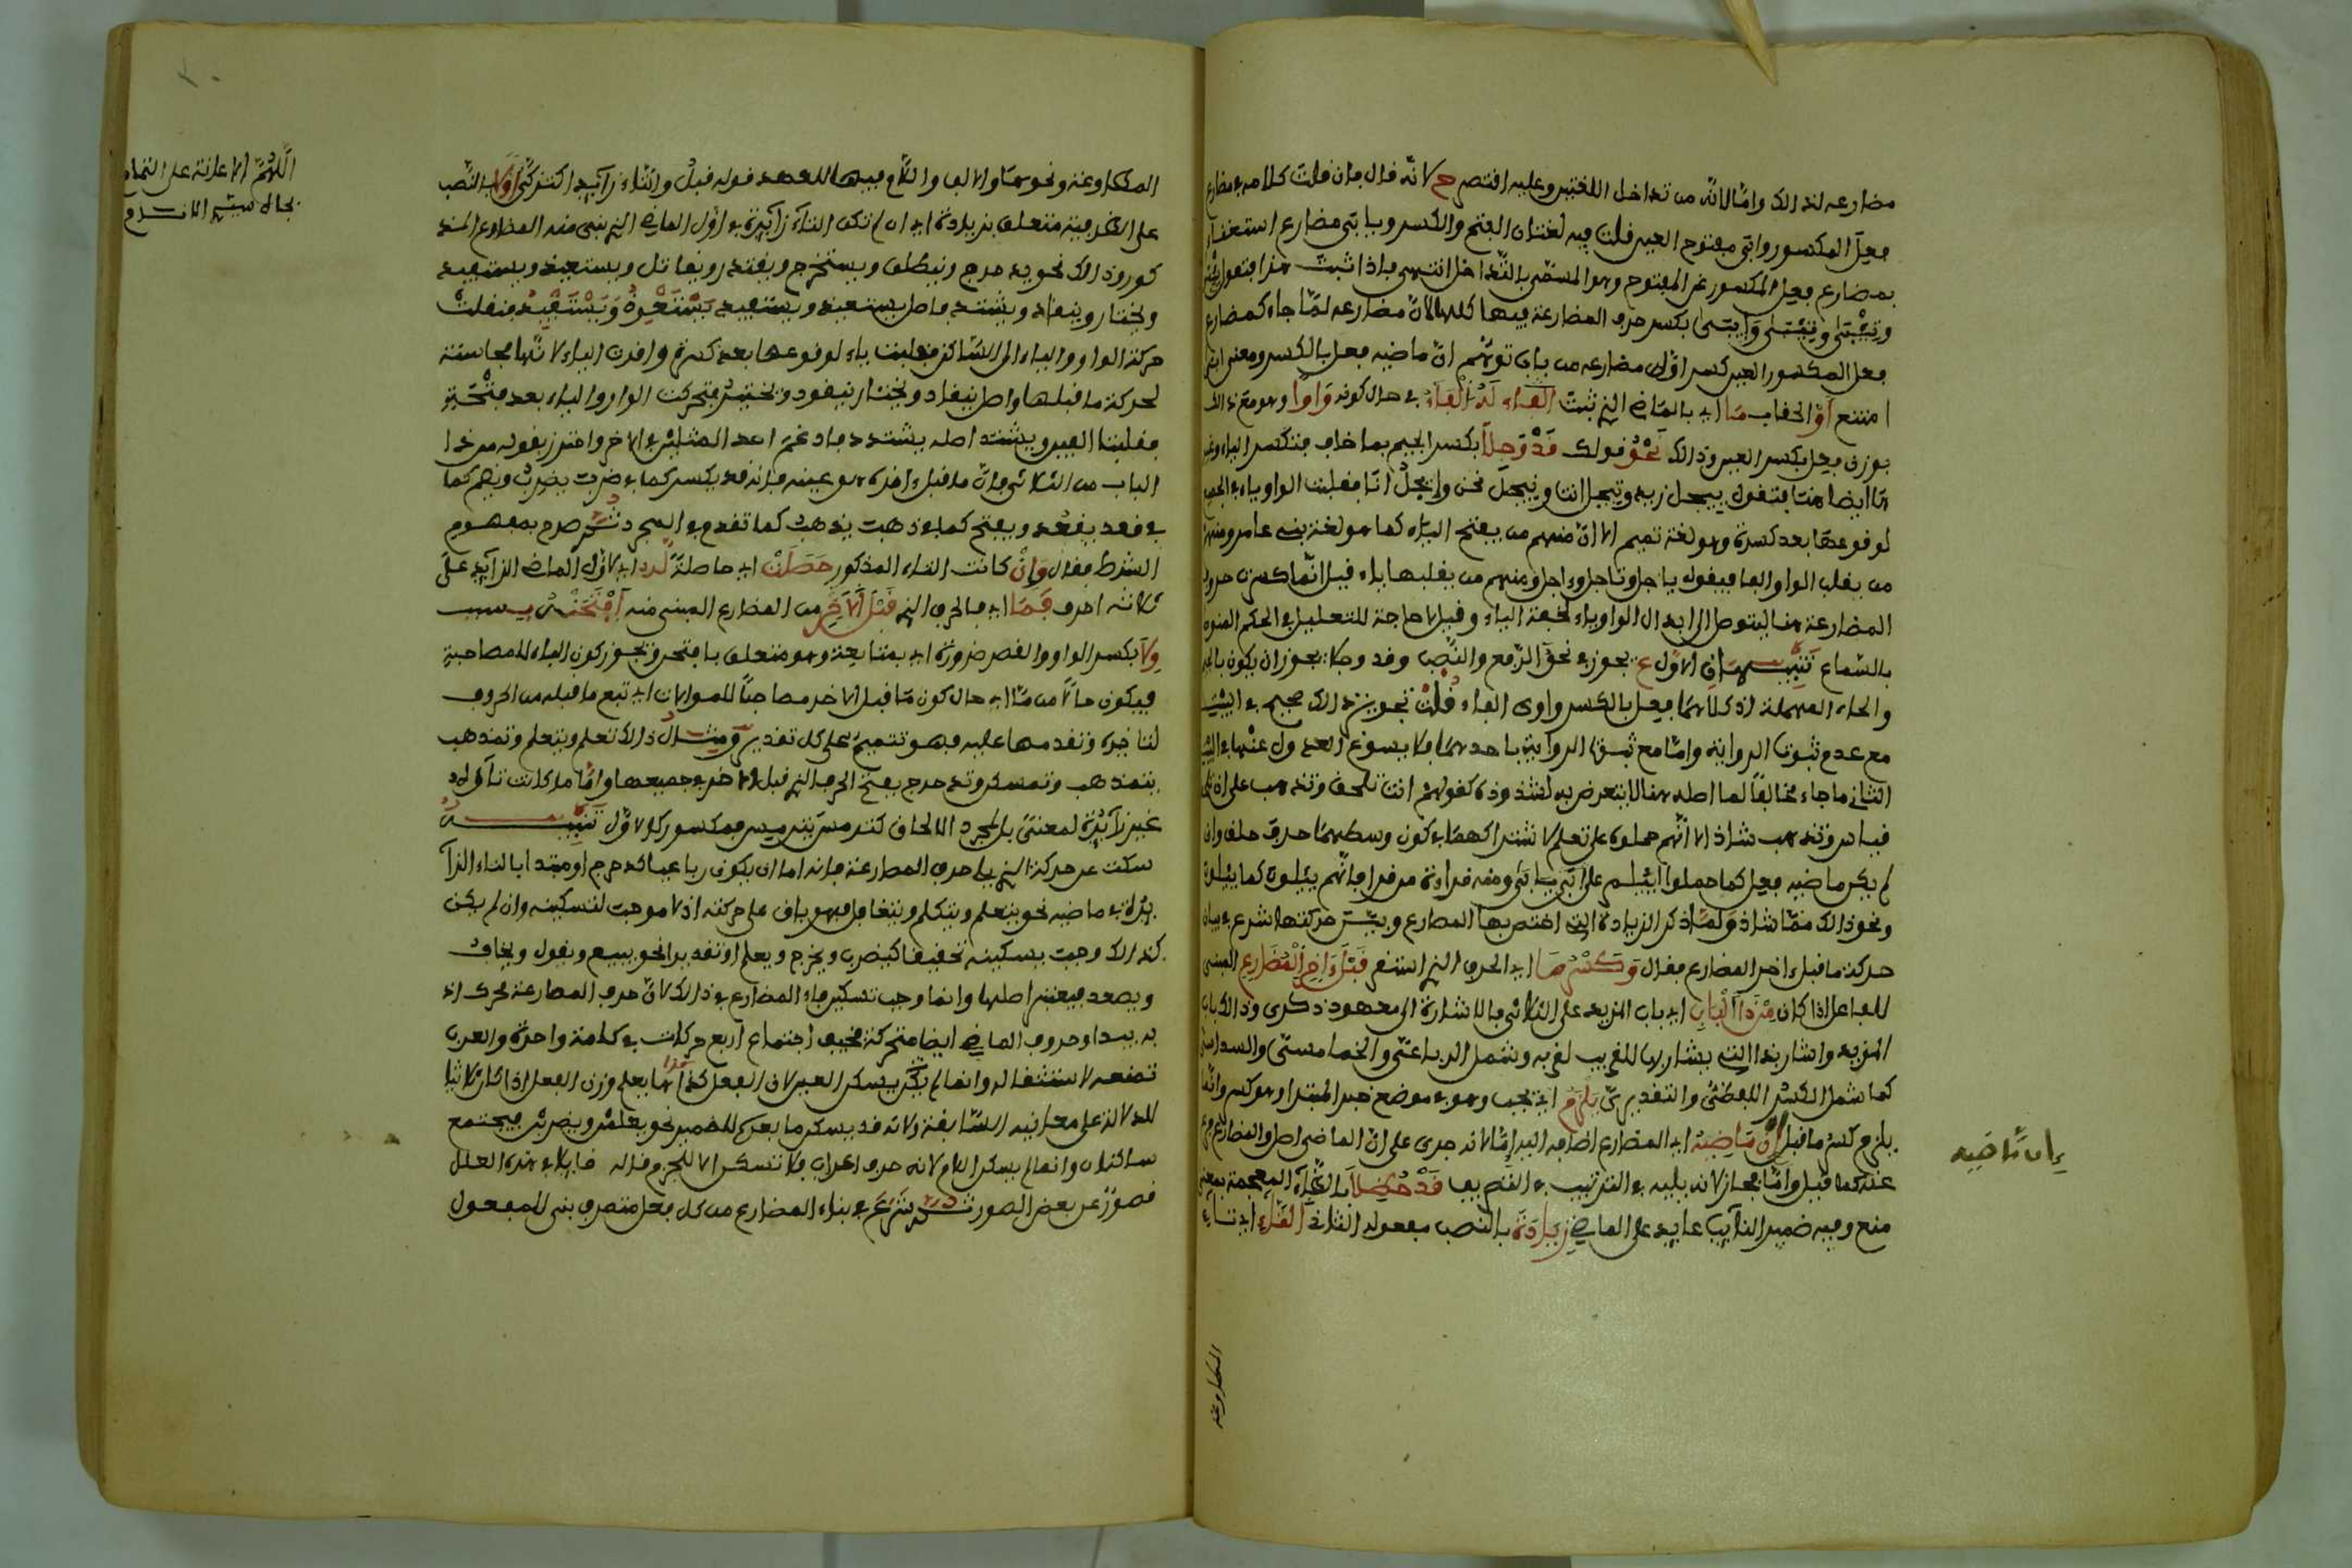 مضارعه لذالك وامّا لانّه من تداخل اللغتين وعليه اقتصر ح لانّه قال فان قلت كلامه في مضارع
فعِل المكسور واتى مفتوح العين قلت فيه لغتان الفتح والكسر ويابى مضارع استغناء
بمضارع فعِل المكسور عن المفتوح وهو المسمّى بالتّداخل انتهى فاذا ثبت هذا فتقول
وتِيْبَى ونِيْبَى وَإيبَى بكسر حرف المضارعة فيها كلها لانّ مضارعه لمّا جاء كمضارع
فعل المكسور العين كسر اوّل مضارعه من باب توهّم انّ ماضيه فعل بالكسر ومعنى
امتنع أوْ الحقاب مَا اي بالماضي الذي ثبت الْفَاء لَهُ الْفَاءُ في حال كونه وَاوًا وهو مع ذالك
بوزن فعِل بكسر العين وذالك نَحْوُ قولك قَدْ وَجِلَا بكسر الجيم بما خاف فتكسر الياء
ايضا فتقول ييجل زيد وتيجل انت ونيجل نحن وإيجل انا فقلبت الواو ياء في الجميع
لوقوعها بعد كسرة وهو لغة تميم الا انّ منهم من يفتح الياء كما هو لغة بني عامر ومنهم
من يقلب الواو الفا فيقول ياجل وتاجل وءاجل ومنهم من يقلبها ياء قيل انّما كسرن حروف
المضارعة هنا ليتوصل الى ابدال الواو ياء لخفة الياء وقيل لا حاجة للتعليل في الحكم
بالسّماع تنبيهان الاوّل يجوز في نحو الرّفع والنّصب وقد وجلا يجوز ان يكون بالجيم
والحاء المهملة اذ كلاهما فعل بالكسر واوى الفاء قلت تجويز ذالك صحيح في
مع عدم ثبوت الرواية وامّا مع ثبوت الرواية باحدهما فلا يسوغ العدول عنها
الثاني ما جاء مخالفا لما اصله هنا لا يتعرض به لشذوذه كقولهم انت تلحف وتذهب على
قياس وتذهب شاذ الا انّهم حملوه على تعلم لاشتراكهما في كون وسطهما حرف حلق وان
لم يكن ماضيه فعِل كما حملوا
ونحو ذالك ممّا شاذ ولمّا ذكر الزيادة التي اختص بها المضارع وبيّن حركتها شرع في بيان
حركة ما قبل ءاخر المضارع فقال وَكَسْرُ مَا اي الحرف الذي استقر قَبْلَ ءَاخِرِ الْمُضَارِعِ المبني
للفاعل اذا كان مِنْ ذَا الْبَابِ اي باب المزيد على الثلاثي فالاشارة الى معهود ذكرى وذالك باب
المزيد واشار بذا التي يشار بها للقريب لقربه وشمل الرباعيّ والخماسيّ والسداسيّ
كما شمل الكسر اللفظيّ والتقديريّ يَلْزَمُ اي يجب وهو في موضع خبر المبتدا وهو كسر
يلزم كسر ما قبل إنْ مَاضِيهِ اي المضارع اضافه اليه امّا لانه جرى على انّ الماضي اصل والمضارع فرع
عنه كما قيل وامّا مجاز لانه يليه في الترتيب قَدْ حُظِلَا بالظّاء المعجمة بمعنى
منع وفيه ضمير النائب عايد على الماضي زِيَادَةَ بالنصب مفعوله الثاني التَّاءِ اي تاء
المطاوعة
إن مَّاضِيهِ
المطاوعة ونحوهمَا والالف واللّام فيها للعهد قوله قبل والتاء زايد كتزكّى أَوَّلًا بالنّصب
على الظرفية متعلق بزيادة اي ان لم تكن التاء زايدة في اوّل الماضي الذي بني منه المضارع
وذالك نحو يدحرج وينطلق ويستخرج ويقتدر ويقاتل ويستعيذ ويستفيد
ويختار وينقاد ويشتد فاصل يستعيذ ويستفيد يَسْتَعْوِذُ وَيَسْتَفْيِدُ فنقلت
حركة الواو والياء الى السّاكن فقلبت ياء لوقوعها بعد كسرة واقرت الياء لانّها مجانسة
لحركة ما قبلها واصل ينقاد ويختار ينقود ويختير فتحركت الواو والياء بعد فتحة
فقلبتا الفين ويشتد اصله يشتدد فادغم احد المثلين في الاخر واحترز بقوله من ذا
الباب من الثلاثي فانّ ما قبل ءاخره هو عينه فانه قد يكسر كما في ضرب يضرب ويضم كما
في قعد يقعد ويفتح كما في ذهب يذهب كما تقدم في المجرد ثم صرح بمفهوم
الشرط فقال وَإنْ كانت التاء المذكور حَصَلَتْ اي حاصلة لَهُ اي لاوّل الماضي الزايد على
ثلاثة احرف فَمَا اي فالحرف الذي قَبْلَ الاَخِرِ من المضارع المبني منه افْتَحَنْ بسبب
وِلَا بكسر الواو والقصر ضرورة اي بمتابعة وهو متعلق بافتحن ويجوز كون الباء للمصاحبة
فيكون حالا من مَا اي حال كون مَا قبل الاخر مصاحبا للموالات اي تبع ما قبله من الحروف
لتاخيره وتقدمها عليه فهو تتميم على كل تقدير ومثال ذالك تعلم يتعلم وتمذهب
يتمذهب وتمسكن وتدحرج بفتح الحرف الذي قبل الاخر في جميعها وامّا ما كانت تاؤه
غير زايدة لمعنى بل لمجرد الالحاق كترمس يترمس فمكسور كالاوّل تنبيه
سكت عن حركة الذي يلي حرف المضارعة فانه اما ان يكون رباعيا كدحرج او مبتدا بالتاء
الزايدة في ماضيه نحو يتعلم ويتكلم ويتغافل فهو باق على حركته اذ لا موجب لتسكينه وان لم يكن
كذالك وجب تسكينه تخفيفا كيضرب ويخرج ويعلم او تقديرا نحو يبيع ويقول ويخاف
ويصعد فيعتبر اصلها وانما وجب تسكين فاء المضارع في ذالك لانّ حرف المضارعة محرك اذ
به يبدا وحروف الماضي ايضا متحركة فخيف اجتماع اربع حركات في كلمة واحدة والعرب
تمنعه لاستثقاله وانما لم يكن يسكن العين لان الفعل كذا بها يعلم وزن الفعل اذا كان ثلاثيا
للدلالة على معانيه السّابقة ولانه قد يسكن ما بعدها للضمير نحو يعلمن ويضربن فيجتمع
ساكنان وانما لم يسكن اللام لانه حرف اعراب فلا تسكن الا للجزم وقاله هذه العلل
قصوّر عن بعض الصور ثم شَرَعَ في بناء المضارع من كل فعل متصرف بني للمفعول
اللّهُمَّ الاعانة على التمام
بجاه سيّد الانام